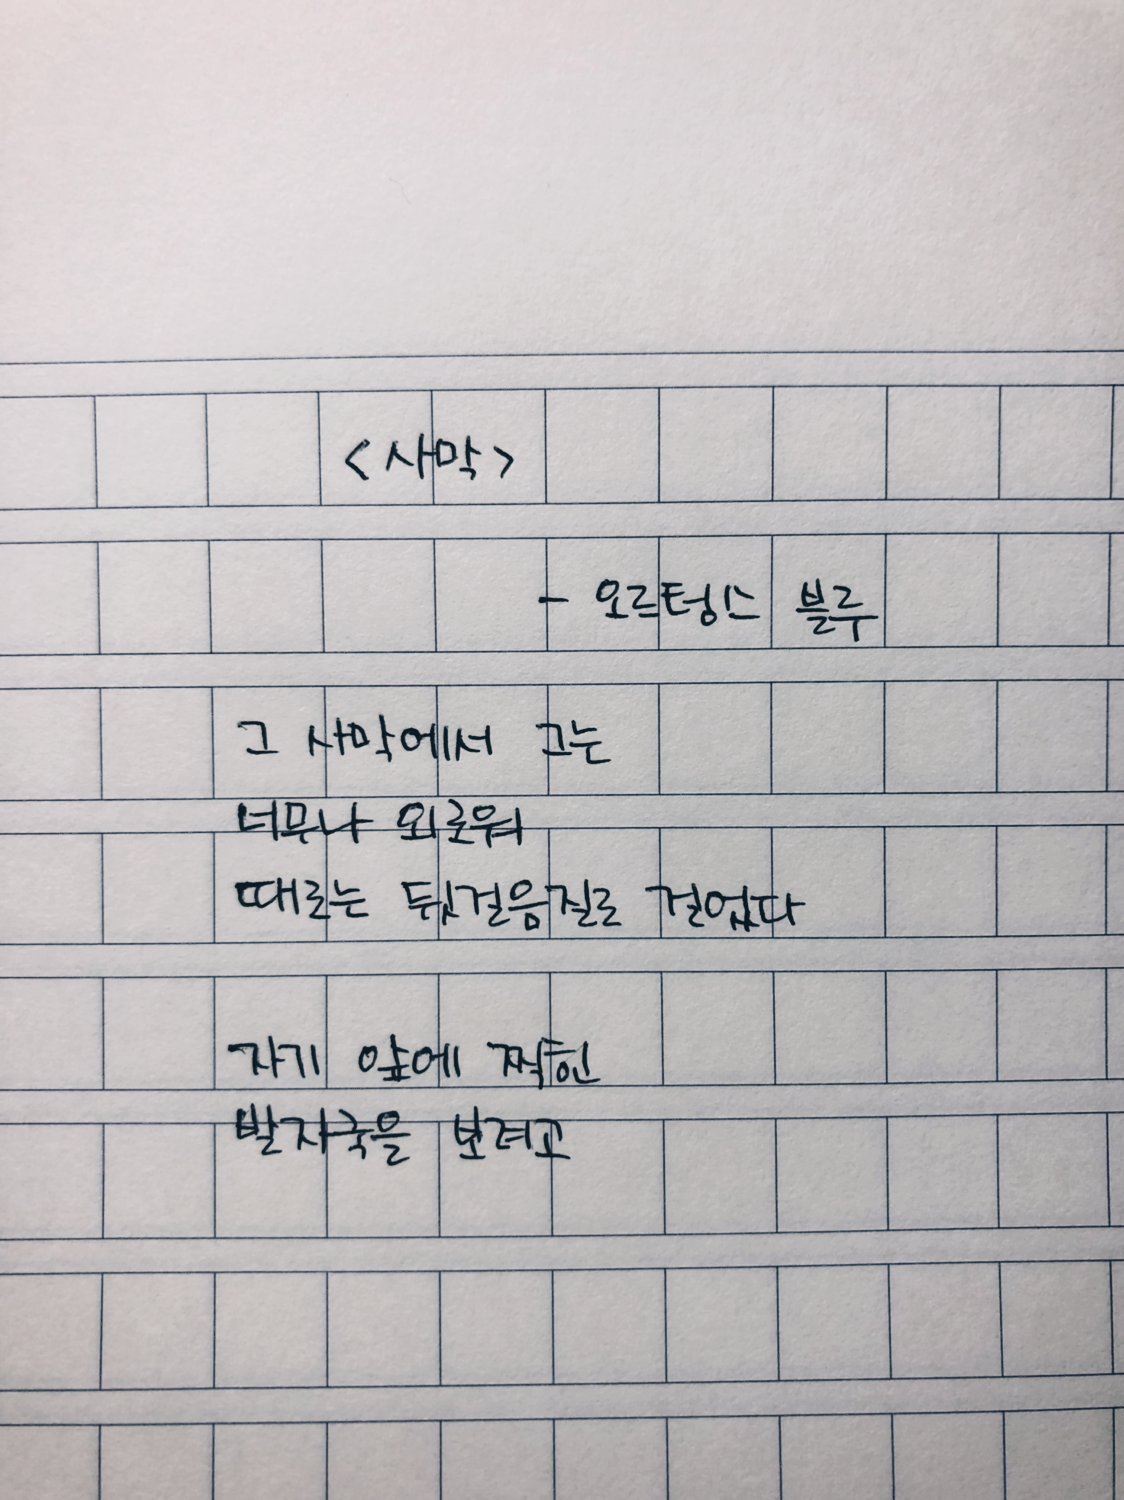 <사막>
- 오르텅스 블루
그 사막에서 그는
너무나 외로워
때로는 뒷걸음질로 걸었다
자기 앞에 찍힌
발자국을 보려고